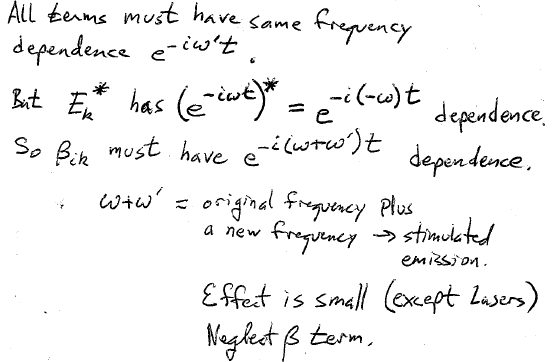 All terms must have same frequency
dependence e^{-iω't}.
But E_k^* has (e^{-iωt})^* = e^{-i(-ω)t} dependence.
So β_{ik} must have e^{-i(ω+ω')t} dependence.
ω+ω' = original frequency plus
a new frequency → stimulated
emission.
Effect is small (except Lasers)
Neglect β term.